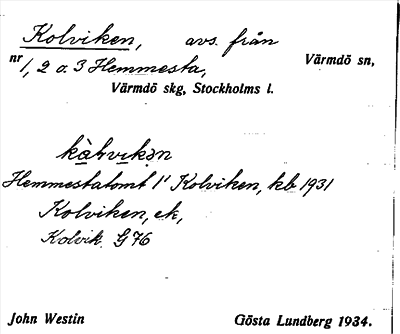 Kolviken, avs. från
nr 1, 2 o. 3 Hemmesta, Värmdö sn,
Värmdö skg, Stockholms l.
kålvikən
Hemmestatomt 1¹ Kolviken, kb 1931
Kolviken, ek,
Kolvik G 76
John Westin Gösta Lundberg 1934.